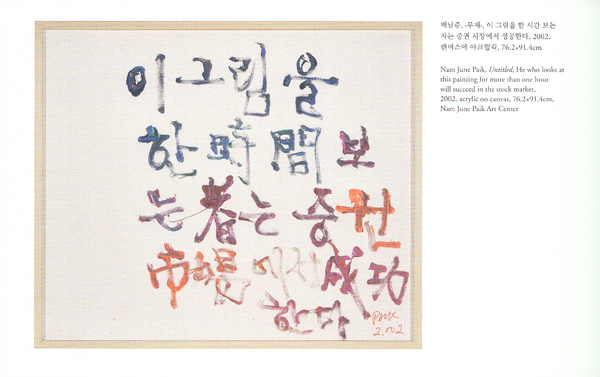 이 그림을
한 時間 보
는 者는 증권
市場에서 成功
한다
PAIK
2.002
백남준, ‹무제›, 이 그림을 한 시간 보는
자는 증권 시장에서 성공한다, 2002,
캔버스에 아크릴릭, 76.2×91.4cm
Nam June Paik, Untitled, He who looks at
this painting for more than one hour
will succeed in the stock market,
2002, acrylic on canvas, 76.2×91.4cm,
Nam June Paik Art Center